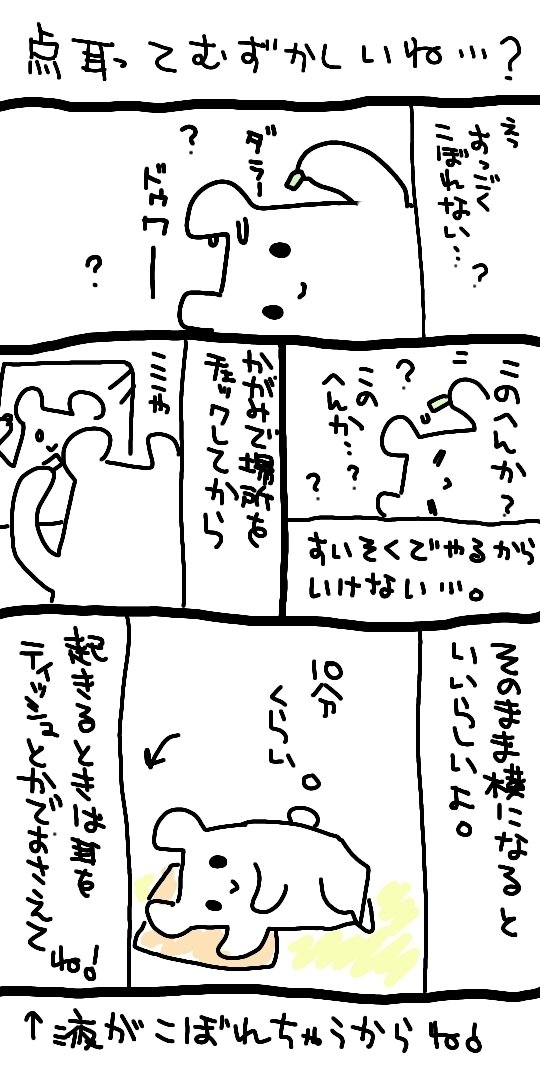 点耳ってむずかしいね…?
えっ
すっごく
こぼれない…?
ダラー
?
?
このへんか?
?
この
へんか…?
?
すいそくでやるから
いけない…。
かがみで場所を
チェックしてから
ミミャ
そのまま横になると
いいらしいよ。
10分
くらい
起きるときは耳を
ティッシュとかでおさえて
ね!
↑液がこぼれちゃうからね。